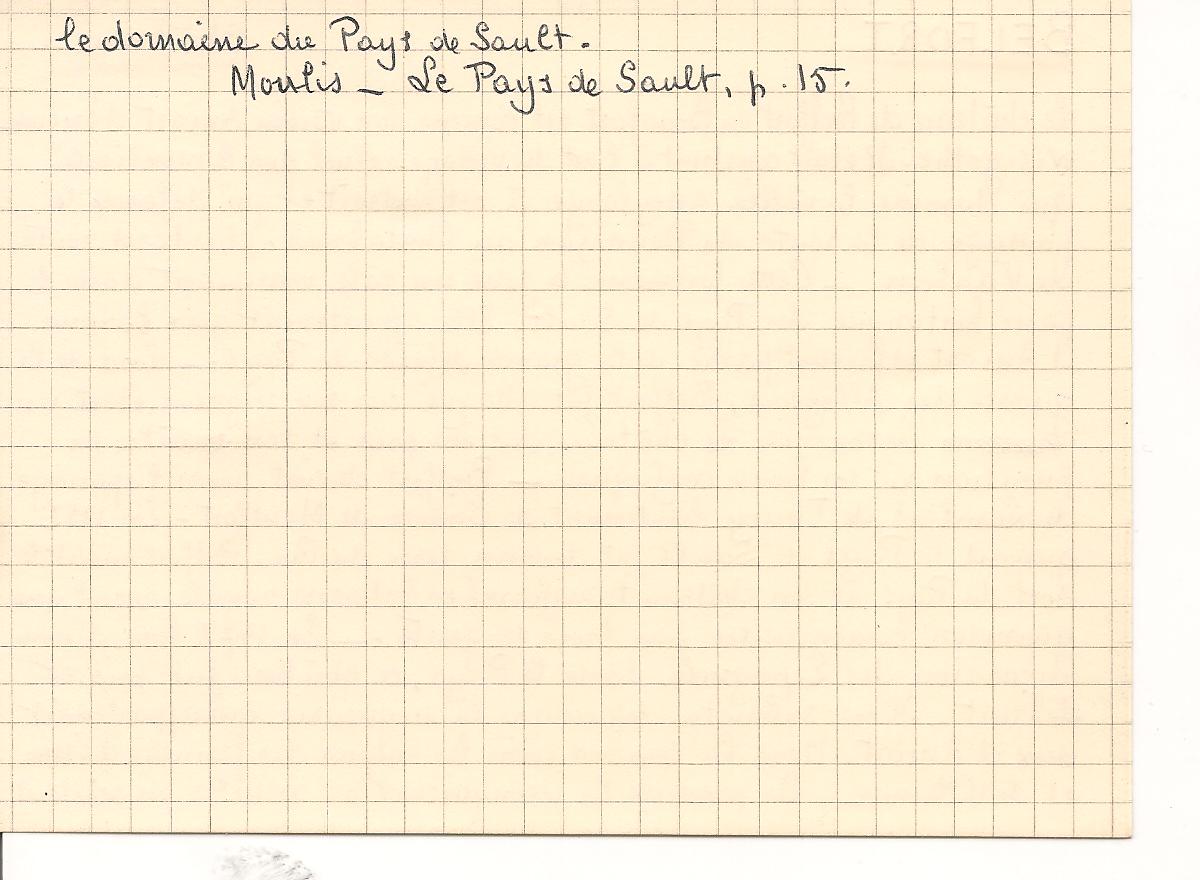 le domaine du Pays de Sault.
Moulis - Le Pays de Sault, p. 15.